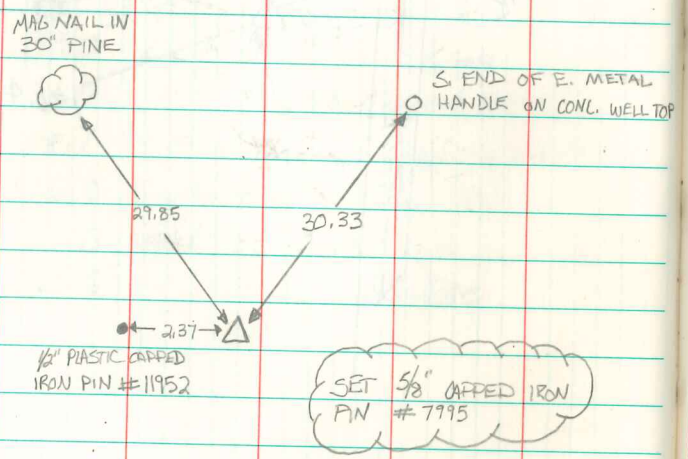 MAG NAIL IN
30" PINE
S. END OF E. METAL
HANDLE ON CONC. WELL TOP
29.85
30.33
2.37
1/2" PLASTIC CAPPED
IRON PIN #11952
SET 5/8" CAPPED IRON
PIN #7995